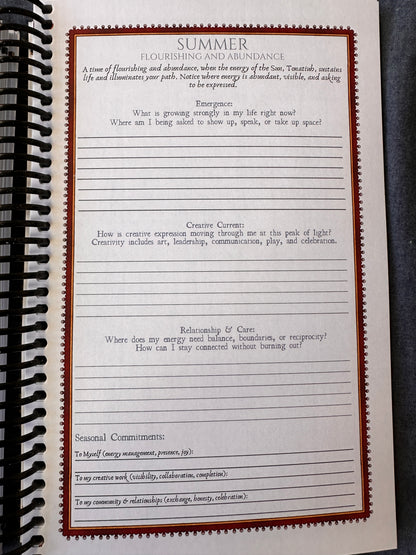 SUMMER
FLOURISHING AND ABUNDANCE
A time of flourishing and abundance, when the energy of the Sun, Tonatiuh, sustains
life and illuminates your path. Notice where energy is abundant, visible, and asking
to be expressed.
Emergence:
What is growing strongly in my life right now?
Where am I being asked to show up, speak, or take up space?
Creative Current:
How is creative expression moving through me at this peak of light?
Creativity includes art, leadership, communication, play, and celebration.
Relationship & Care:
Where does my energy need balance, boundaries, or reciprocity?
How can I stay connected without burning out?
Seasonal Commitments:
To Myself (energy management, presence, joy):
To my creative work (visibility, collaboration, completion):
To my community & relationships (exchange, honesty, celebration):